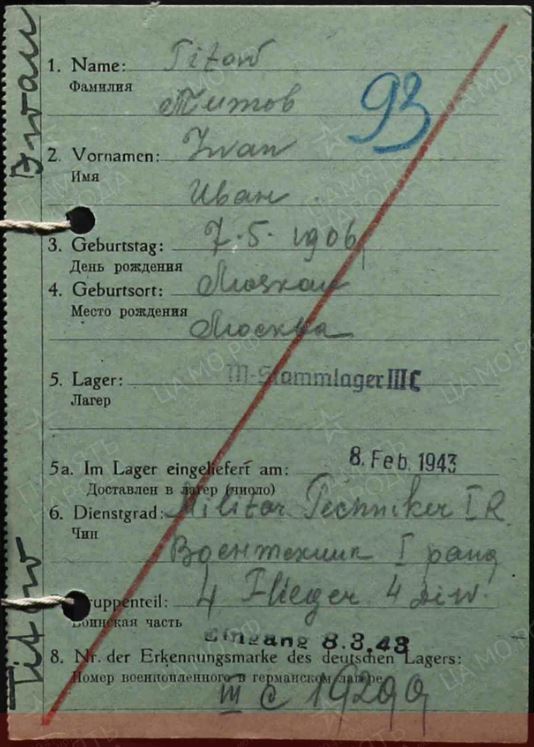 Titow Iwan
1. Name: Titow
Фамилия
Титов
93
2. Vornamen: Iwan
Имя
Иван
3. Geburtstag: 7.5.1906
День рождения
4. Geburtsort: Moskau
Место рождения
Москва
5. Lager: M-Stammlager III C
Лагерь
5a. Im Lager eingeliefert am: 8. Feb. 1943
Доставлен в лагерь (число)
6. Dienstgrad: Militär Techniker I R
Чин
Воентехник I ранга
Truppenteil: 4 Flieger 4 div.
Воинская часть
Eingang 8.3.43
8. Nr. der Erkennungsmarke des deutschen Lagers:
Номер военнопленного в германском лагере
III C